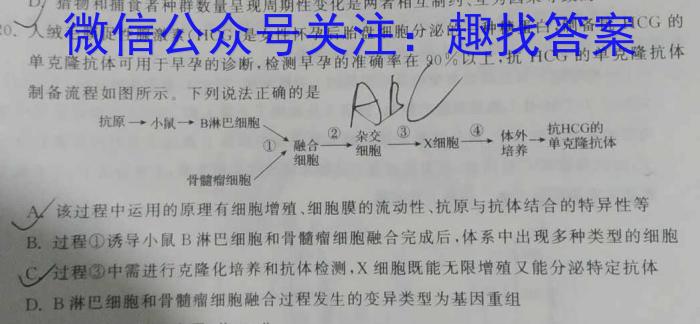 D. 猎物和捕食者种群数量呈现周期性变化是两者相互制约、互为因果
微信公众号关注：趣找答案
20. 人绒毛膜促性腺激素(HCG)是女性怀孕后胎盘细胞分泌的 HCG 的
单克隆抗体可用于早孕的诊断,检测早孕的准确率在 90%以上,抗 HCG 的单克隆抗体
制备流程如图所示。下列说法正确的是
ABC
抗原 → 小鼠 → B淋巴细胞
① 融合细胞 ② 杂交细胞 ③ X细胞 ④ 体外培养 → 抗HCG的单克隆抗体
骨髓瘤细胞
A. 该过程中运用的原理有细胞增殖、细胞膜的流动性、抗原与抗体结合的特异性等
B. 过程①诱导小鼠 B 淋巴细胞和骨髓瘤细胞融合完成后,体系中出现多种类型的细胞
C. 过程③中需进行克隆化培养和抗体检测,X 细胞既能无限增殖又能分泌特定抗体
D. B 淋巴细胞和骨髓瘤细胞融合过程发生的变异类型为基因重组